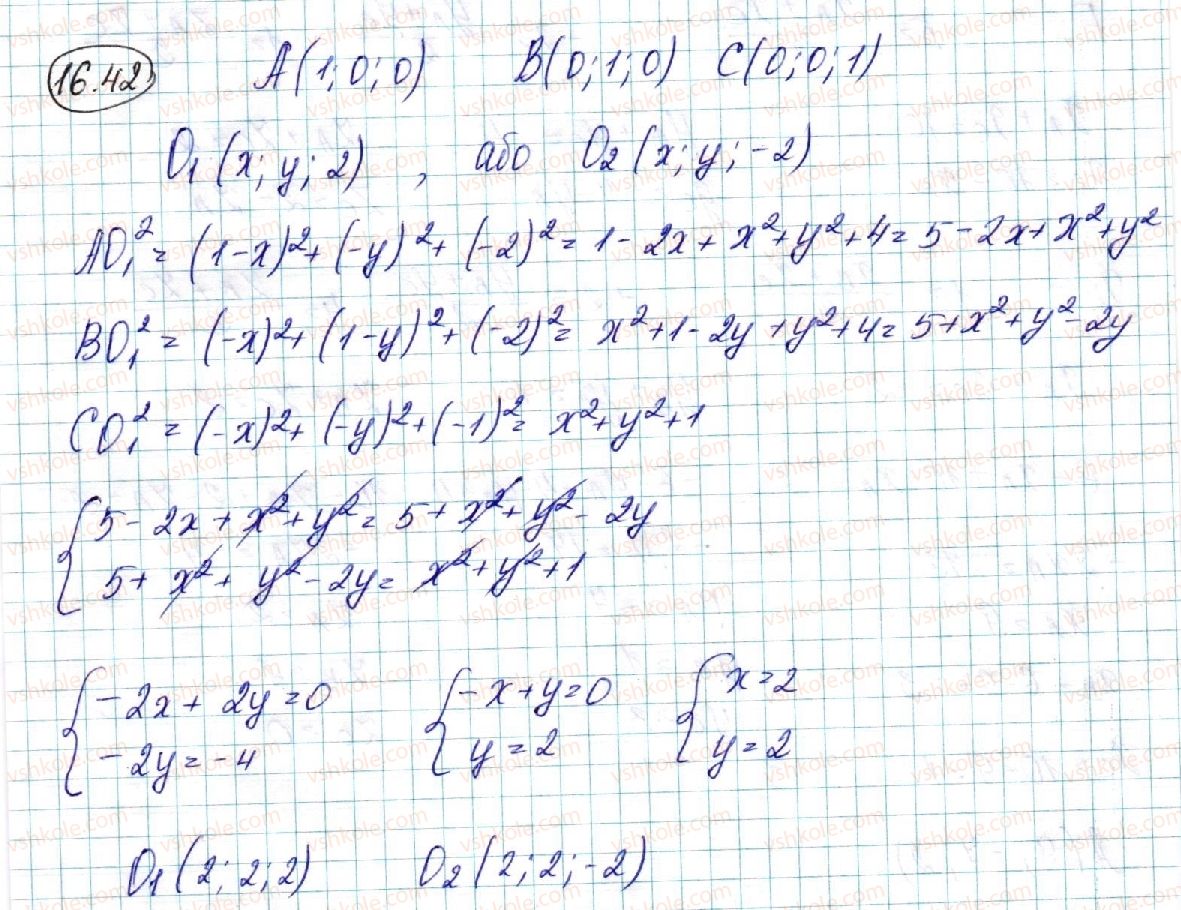 16.42 A(1;0;0) B(0;1;0) C(0;0;1)
O₁(x;y;2), або O₂(x;y;-2)
AO₁² = (1-x)²+(-y)²+(-2)² = 1-2x+x²+y²+4 = 5-2x+x²+y²
BO₁² = (-x)²+(1-y)²+(-2)² = x²+1-2y+y²+4 = 5+x²+y²-2y
CO₁² = (-x)²+(-y)²+(-1)² = x²+y²+1
{ 5-2x+x²+y² = 5+x²+y²-2y
5+x²+y²-2y = x²+y²+1
{ -2x+2y=0 { -x+y=0 { x=2
-2y=-4 y=2 y=2
O₁(2;2;2) O₂(2;2;-2)
vshkole.com